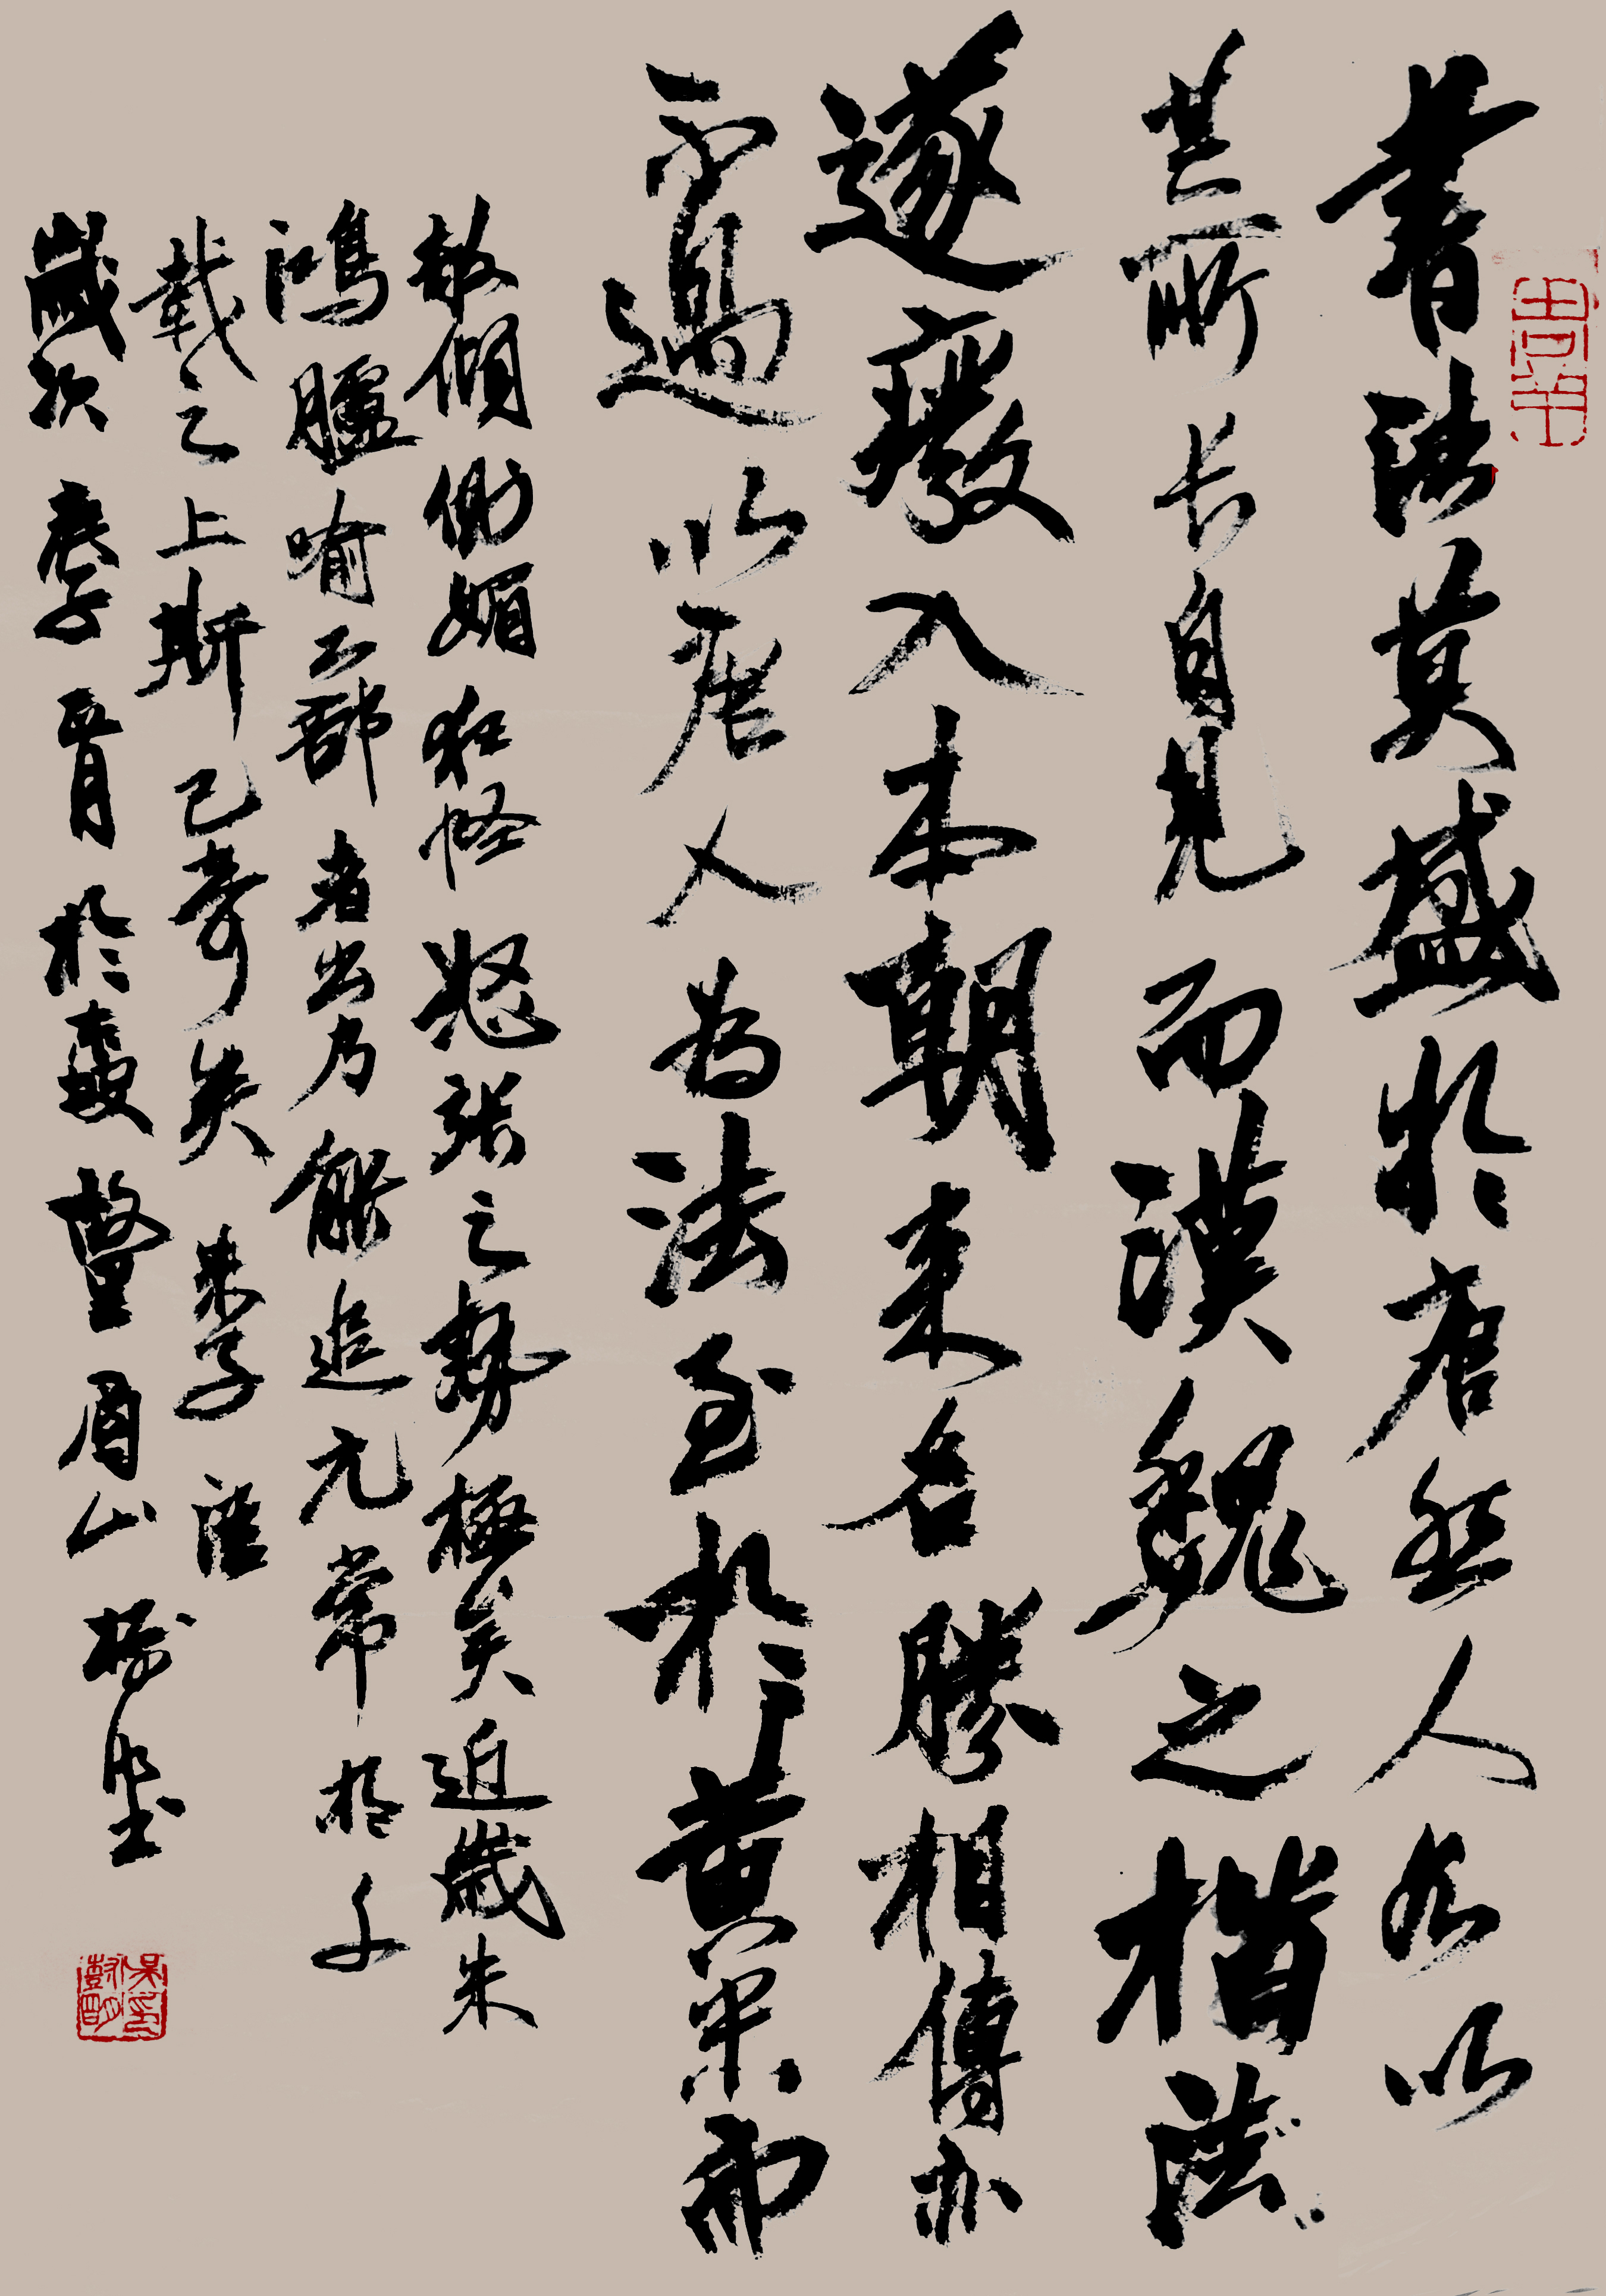 書法莫盛於唐然人各以
其所长自見而漢魏之楷法
遂廢入本朝来名勝相傳亦
不過以唐人为法至於黄米而
欹傾側媚狂怪怒張之勢極矣近歲朱
鴻臚喻工部者出乃能追元常於千
載之上斯已奇矣 朱子語
歲次庚子 於 眉山